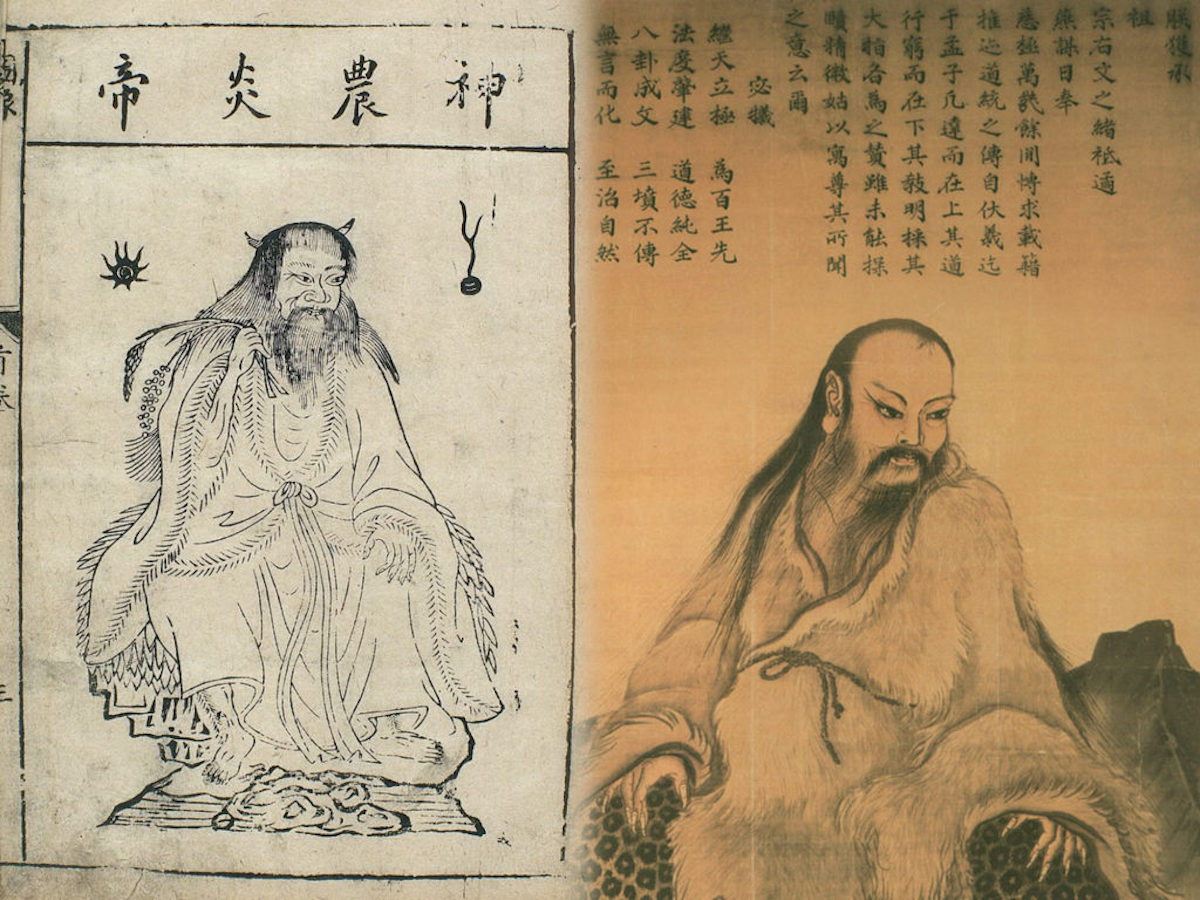 神農炎帝
朕獲承
祖
宗右文之緒祗遹
燕謀日奉
慈極萬幾餘閒博求載籍
推迹道統之傳自伏羲迄
于孟子凡達而在上其道
行窮而在下其敎明採其
大指各為之贊雖未能探
賾精微姑以寓尊其所聞
之意云爾
宓犧
繼天立極 為百王先
法度肇建 道德純全
八卦成文 三墳不傳
無言而化 至治自然